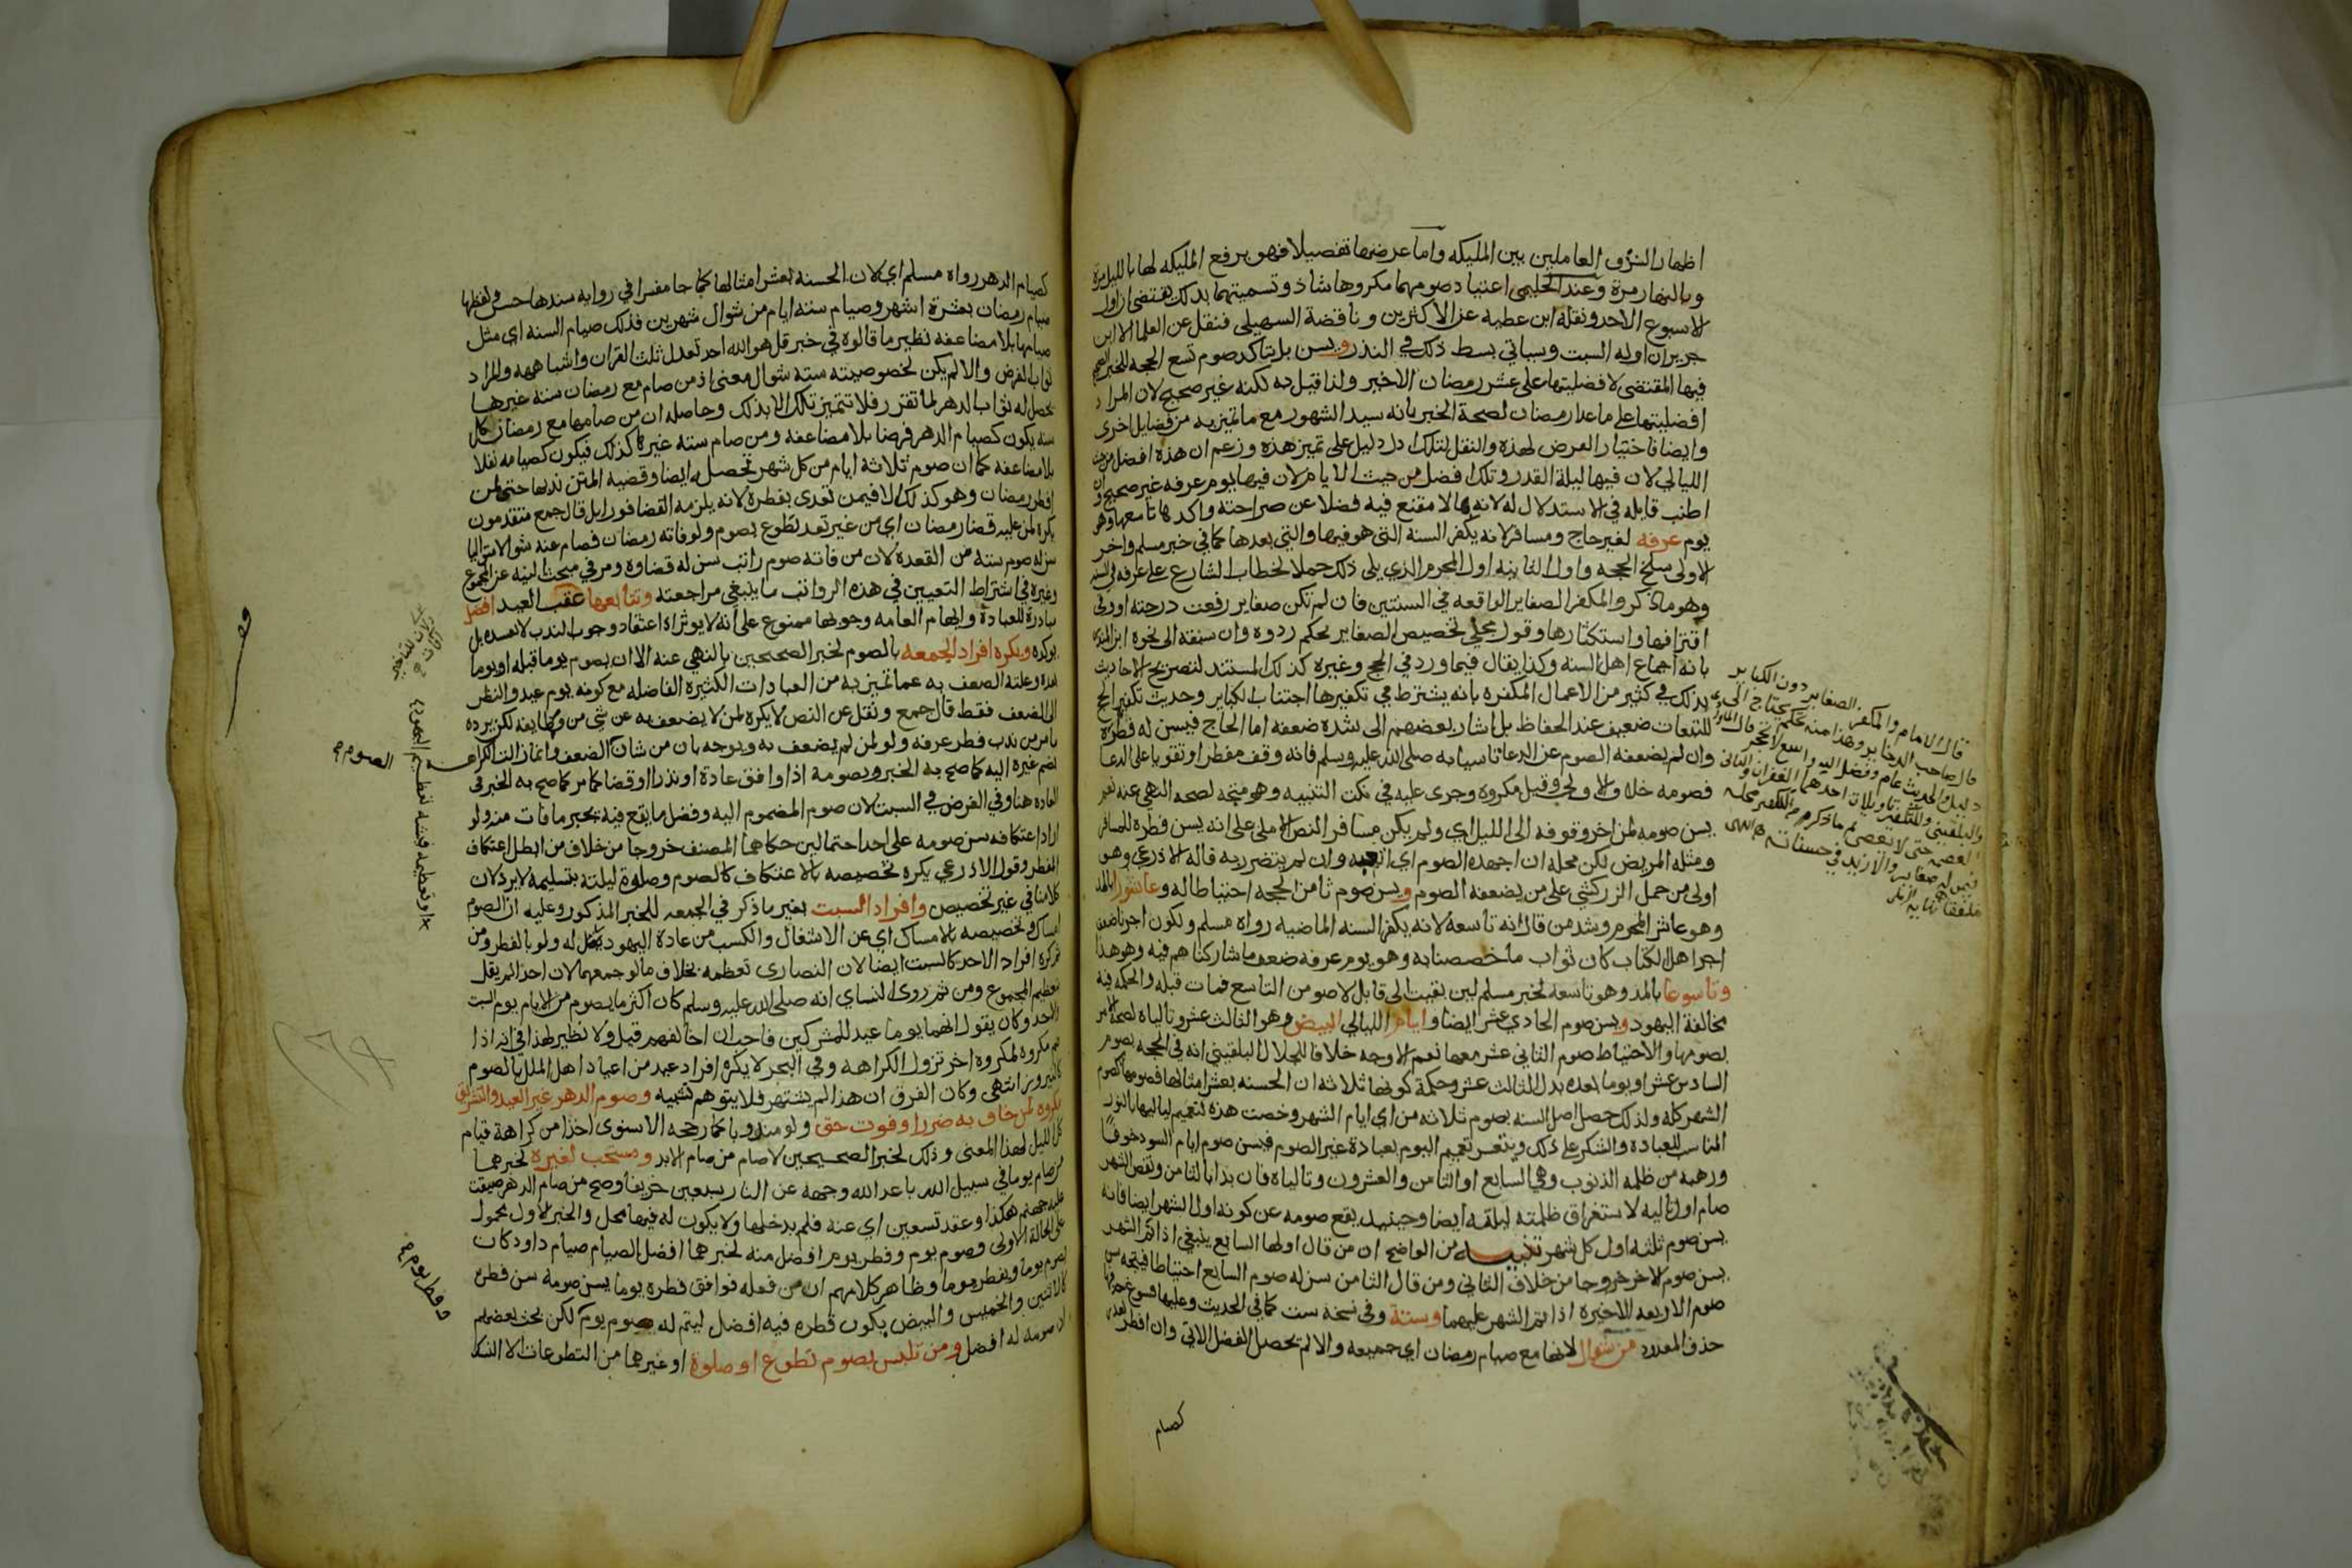 اظهار الشرف العاملين بين المليكه واما عرضها تفصيلا فهو برفع المليكه لها بالليل مرة
وبالنهار مرة وعند الحليمى اعتياد صومهما مكروها شاذ وتسميتهما بذلك يقتضى ان اول
الاسبوع الاحد ونقله ابن عطيه عن الاكثرين وناقضة السهيلى فنقل عن العلما الا ابن
جرير ان اوله السبت وسياتي بسط ذلك في النذر ويسن بل يتاكد صوم تسع الحجه للخبر الصحيح
فيها المقتضى لافضليتها على عشر رمضان الاخير ولذا قيل به لكنه غير صحيح لان المراد
افضليتها على ما عدا رمضان لصحة الخبر بانه سيد الشهور مع ما تميز به من فضايل اخرى
وايضا فاختيار الفرض لهذه والنفل لتلك ادل دليل على تميز هذه وزعم ان هذه افضل من حيث
الليالي لان فيها ليلة القدر وتلك افضل من حيث الايام لان فيها يوم عرفه غير صحيح وان
اطنب قايله في الاستدلال له لانه بما لا مقنع فيه فضلا عن صراحته واكدها تاسعها وهو
يوم عرفه لغير حاج ومسافر لانه يكفر السنه التى هو فيها والتي بعدها كما في خبر مسلم واخر
الاولى سلخ الحجه واول الثانيه اول المحرم الذي يلى ذلك حملا لخطاب الشارع على عرفه في السنه
وهو ما ذكر والمكفر الصغاير الواقعه في السنتين فان لم تكن صغاير رفعت درجته او وقى
اقترافها واستكثارها وقول مجلي تخصيص الصغاير تحكم ردوه وان سبقه الى نحوه ابن المنذر
بانه اجماع اهل السنه وكذا يقال فيما ورد في الحج وغيره كذلك المستند لتصريح الاحاديث
بذلك في كثير من الاعمال المكفره بانه يشترط في تكفيرها اجتناب الكباير وحديث تكفير الحج
للتبعات ضعيف عند الحفاظ بل اشار بعضهم الى شدة ضعفه اما الحاج فيسن له فطره
وان لم يضعفه الصوم عن الدعا تاسيا به صلى الله عليه وسلم فانه وقف مفطرا وتقويا على الدعا
فصومه خلاف الاولى وقيل مكروه وجرى عليه في نكت التنبيه وهو متجه لصحه النهى عنه نعم
يسن صومه لمن اخر وقوفه الى الليل اي ولم يكن مسافرا لنص الاملى على انه يسن فطره للمسافر
ومثله المريض لكن محله ان اجهده الصوم اي اتعبه وان لم يتضرر به قاله الاذرعي وهو
اولى من حمل الزركشي على من يضعفه الصوم ويسن صوم ثامن الحجه احتياطا له وعاشورا بالمد
وهو عاشر المحرم وشذ من قال انه تاسعه لانه يكفر السنه الماضيه رواه مسلم ولكون اجرنا ضعف
اجر اهل الكتاب كان ثواب ما خصصنا به وهو يوم عرفه ضعف ما شاركناهم فيه وهو هذا
وتاسوعا بالمد وهو تاسعه لخبر مسلم لين بقيت الى قابل لاصومن التاسع فمات قبله والحكمه فيه
مخالفة اليهود ويسن صوم الحادي عشر ايضا وايام الليالي البيض وهو الثالث عشر وتالياه لصحة الامر
بصومها والاحتياط صوم الثاني عشر معها نعم الاوجه خلافا للجلال البلقيني انه في الحجه يصوم
السادس عشر او يوما بعده بدل الثالث عشر وحكمة كونها ثلاثه ان الحسنه بعشر امثالها فصومها كصوم
الشهر كله ولذلك حصل اصل السنه بصوم ثلاثه من اي ايام الشهر وخصت هذه لتعميم لياليها بالنور
المناسب للعباده والشكر على ذلك ويتعسر تعميم اليوم بعبادة غير الصوم فيسن صوم ايام السود خوفا
ورهبه من ظلمه الذنوب وهي السابع او الثامن والعشرون وتالياه فان بدا بالثامن ونقص الشهر
صام اول تاليه لاستغراق ظلمته ليلته ايضا وحينيذ يقع صومه عن كونه اول الشهر ايضا فانه
يسن صوم ثلثه اول كل شهر تنبيه من الواضح ان من قال اولها السابع ينبغي اذا تم الشهر
يسن صوم الاخر خروجا من خلاف الثاني ومن قال الثامن سن له صوم السابع احتياطا فينتجه سن
صوم الاربعه الاخيره اذا تم الشهر عليهما وستة وفي نسخه ست كما في الحديث وعليها فسوغ حذف التا
حذف المعدود من شوال لانها مع صيام رمضان اي جميعه والا لم يحصل الفضل الاتي وان افطر لعذر
كصيام
قال الامام والمكفر الصغاير دون الكباير
قال صاحب الدخاير وهذا منه تحكم يحتاج الى
دليل والحديث عام وفضل الله واسع لا يحجر
كصيام الدهر رواه مسلم اي لان الحسنه بعشر امثالها كما جا مفسرا في روايه سندها حسن ولفظها
صيام رمضان بعشرة اشهر وصيام سته ايام من شوال شهرين فذلك صيام السنه اي مثل
صيامها بلا مضاعفه نظير ما قالوه في خبر قل هو الله احد تعدل ثلث القران واشباهه والمراد
ثواب الفرض والا لم يكن لخصوصيته سته شوال معنى اذ من صام مع رمضان سته غيرها
يحصل له ثواب الدهر لما تقرر فلا تتميز تلك الا بذلك وحاصله ان من صامها مع رمضان كل
سنه يكون كصيام الدهر فرضا بلا مضاعفه ومن صام سته غيرها كذلك فيكون كصيامه نفلا
بلا مضاعفه كما ان صوم ثلاثة ايام من كل شهر تحصله ايضا وقضيه المتن ندبها حتى لمن
افطر رمضان وهو كذلك الا فيمن تعدى بفطره لانه يلزمه القضا فورا بل قال جمع متقدمون
يكره لمن عليه قضا رمضان اي من غير تعد تطوع بصوم ولو فاته رمضان فصام عنه شوالا
سن له صوم سته من القعده لان من فاته صوم راتب سن له قضاوه ومر في مبحث النيه عن المجموع
وغيره في اشتراط التعيين في هذه الرواتب ما ينبغي مراجعته وتتابعها عقب العيد افضل
مبادرة للعبادة وايهام العامه وجوبها ممنوع على انه لا يوثر اذ اعتقاد وجوب الندب لا يفسده بل
يوكده ويكره افراد الجمعه بالصوم لخبر الصحيحين بالنهي عنه الا ان يصوم يوما قبله او يوما
بعده وعلته الضعف به عما تميز به من العبادات الكثيره الفاضله مع كونه يوم عيد والنظر
الى الضعف فقط قال جمع ونقل عن النص لا يكره لمن لا يضعف به عن شي من وظايفه لكن يرده
ما مر من ندب فطر عرفه ولو لمن لم يضعف به ويوجه بان من شان الصوم الضعف وانما زالت الكراهه
بضم غيره اليه كما صح به الخبر وبصومه اذا وافق عادة او نذرا او قضا كما مر كما صح به الخبر في
العاده هنا وفي الفرض في السبت لان صوم المضموم اليه وفضل ما يقع فيه يجبر ما فات منه ولو
اراد اعتكافه سن صومه على احد احتمالين حكاهما المصنف خروجا من خلاف من ابطل اعتكاف
المفطر وقول الاذرعي يكره تخصيصه بالاعتكاف كالصوم وصلوة ليلته بتسليمه لا يرد لان
كلامنا في غير تخصيص وافراد السبت بغير ما ذكر في الجمعه للخبر المذكور وعليه ان الصوم
امساك وتخصيصه بالامساك اي عن الاشتغال والكسب من عادة اليهود
يكره افراد الاحد كالسبت ايضا لان النصارى تعظمه بخلاف ما لو جمعهما لان احدا لم يقل
بتعظيم المجموع ومن ثم روى النساي انه صلى الله عليه وسلم كان اكثر ما يصوم من الايام يوم السبت
والاحد وكان يقول انهما يوما عيد للمشركين فاحب ان اخالفهم قيل ولا نظير لهذا في انه اذا
ضم مكروه لمكروه اخر تزول الكراهه وفي البحر لا يكره افراد عيد من اعياد اهل الملل بالصوم
كالنيروز انتهى وكان الفرق ان هذا لم يشتهر فلا يتوهم تشبيه وصوم الدهر غير العيد والتشريق
مكروه لمن خاف به ضررا او فوت حق ولو مندوبا كما رجحه الاسنوى اخذا من كراهة قيام
كل الليل لهذا المعنى وذلك لخبر الصحيحين لا صام من صام الابد ومستحب لغيره لخبرهما
من صام يوما في سبيل الله باعد الله وجهه عن النار سبعين خريفا وصح من صام الدهر ضيقت
عليه جهنم هكذا وعقد تسعين اي عنه فلم يدخلها ولا يكون له فيها محل والخبر الاول محمول
على الحالة الاولى وصوم يوم وفطر يوم افضل منه لخبرهما افضل الصيام صيام داود كان
يصوم يوما ويفطر يوما وظاهر كلامهم ان من فعله فوافق فطره يوما يسن صومه سن فطره
كالاثنين والخميس والبيض يكون فطره فيه افضل ليتم له صوم يوم لكن بحث بعضهم
ان صومه له افضل ومن تلبس بصوم تطوع او صلوة او غيرهما من التطوعات الا النسك
الصوم م
وفطر يوم م